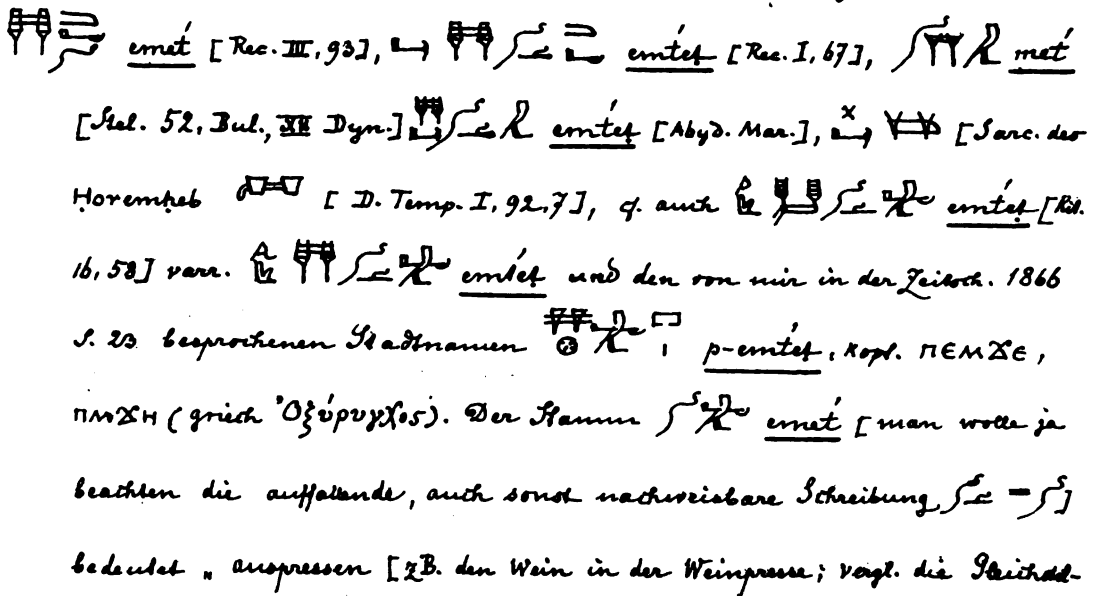 emet́ [Rec. III, 93], emtet [Rec. I, 67], met́
[Stel. 52, Bul., XII Dyn.] emt́et [Abyd. Mar.], [Sarc. des
Ḥoremḥeb [D. Temp. I, 92, 7], cf. auch emt́et [Rit.
1b, 58] varr. emt́et und den von mir in der Zeitsch. 1866
S. 23 besprochenen Stadtnamen p-emt́et, kopt. ⲡⲉⲙϫⲉ,
(griech Ὀξύρυγχος). Der Stamm emet́ [man wolle ja
beachten die auffallende, auch sonst nachweisbare Schreibung = ]
bedeutet „ auspressen [zB. den Wein in der Weinpresse; vergl. die